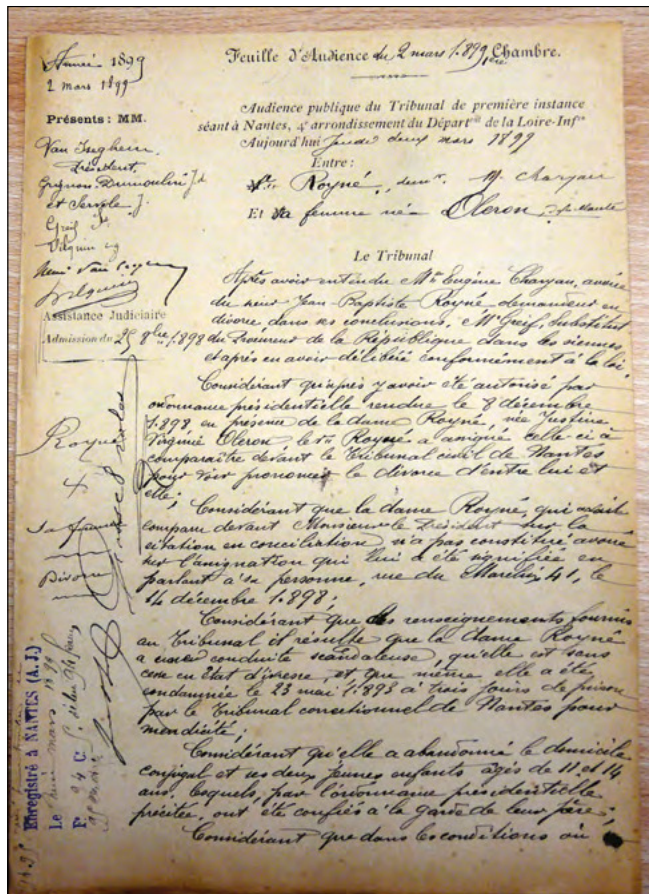 Année 1899
2 mars 1899
Présents : MM.
Président,
et Servole J.
Assistance Judiciaire
Admission du 25 8bre 1898
Royné
Sa femme
Divorce
Enregistré à NANTES (A. J.)
Le mars 1899
F° 94 C.
Feuille d'Audience du 2 mars 1.899, 1ère Chambre.
Audience publique du Tribunal de première instance
séant à Nantes, 4e arrondissement du Départnt de la Loire-Infre
Aujourd'hui jeudi deux mars 1899
Entre :
Royné, demr. M. Charyau
Et Sa femme née Oleron
Le Tribunal
Après avoir entendu Me Eugène Charyau, avoué
du sieur Jean-Baptiste Royné demandeur en
divorce dans ses conclusions, Mr Greif, Substitut
du Procureur de la République dans les siennes
et après en avoir délibéré conformément à la loi,
Considérant qu'après y avoir été autorisé par
ordonnance présidentielle rendue le 8 décembre
1.898, en présence de la dame Royné, née Justine
Virginie Oleron, le sr Royné a assigné celle ci à
comparaître devant le Tribunal civil de Nantes
pour voir prononcer le divorce d'entre lui et
elle;
Considérant que la dame Royné, qui avait
comparu devant Monsieur le Président sur la
citation en conciliation n'a pas constitué avoué
sur l'assignation qui lui a été signifiée en
parlant à sa personne, rue du Marchix 41, le
14 décembre 1.898;
Considérant que des renseignements fournis
au Tribunal il résulte que la dame Royné
a une conduite scandaleuse, qu'elle est sans
cesse en état d'ivresse, et que même elle a été
condamnée le 23 mai 1.893 à trois jours de prison
par le Tribunal correctionnel de Nantes pour
mendicité;
Considérant qu'elle a abandonné le domicile
conjugal et ses deux jeunes enfants âgés de 11 et 14
ans, lesquels, par l'ordonnance présidentielle
précitée, ont été confiés à la garde de leur père;
Considérant que dans les conditions où